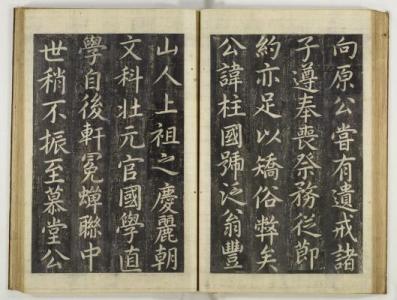 向原公嘗有遺戒諸
子遵奉喪祭務從節
約亦足以矯俗弊矣
公諱柱國號泛翁豐
山人上祖之慶麗朝
文科壯元官國學直
學自後軒冕蟬聯中
世稍不振至慕堂公